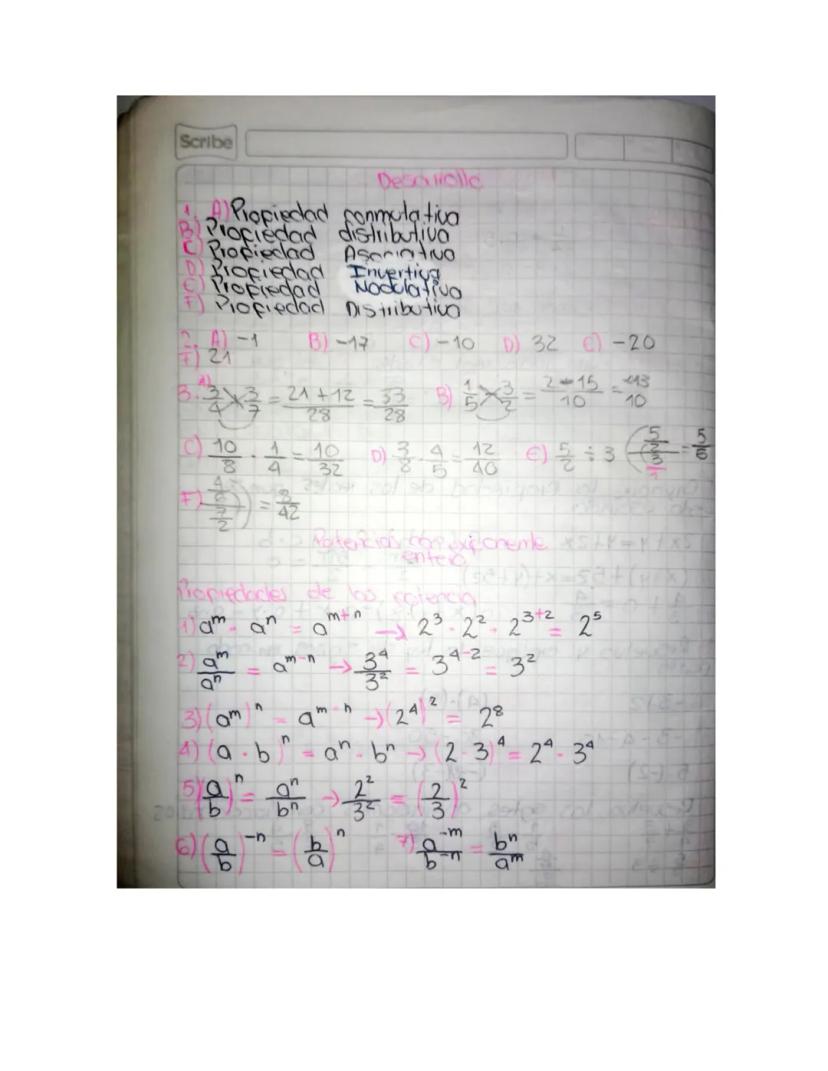 Scribe
Desarrollo
1. A) Propiedad conmulativa
B) Propiedad distributiva
C) Propiedad Asociativa
D) Propiedad Invertiva
E) Propiedad Modulativa
F) Propiedad Distributiva
2. A) -1 B) -17 C) -10 D) 32 E) -20
F) 21
3. A) 3/4 × 3/7 = 21+12/28 = 33/28 B) 1/5 × 3/2 = 2-15/10 = -13/10
C) 10/8 · 1/4 = 10/32 D) 3/8 · 4/5 = 12/40 E) 5/2 ÷ 3 (5/2 / 3/1) = 5/6
F) (4/6 / 7/2) = 8/42
Potencias con exponente
entero
Propiedades de las potencia
1) a^m · a^n = a^(m+n) → 2^3 · 2^2 · 2^(3+2) = 2^5
2) a^m/a^n = a^(m-n) → 3^4/3^2 = 3^(4-2) = 3^2
3) (a^m)^n = a^(m·n) → (2^4)^2 = 2^8
4) (a · b)^n = a^n · b^n → (2·3)^4 = 2^4 · 3^4
5) (a/b)^n = a^n/b^n → 2^2/3^2 = (2/3)^2
6) (a/b)^-n = (b/a)^n 7) a^-m/b^-n = b^n/a^m